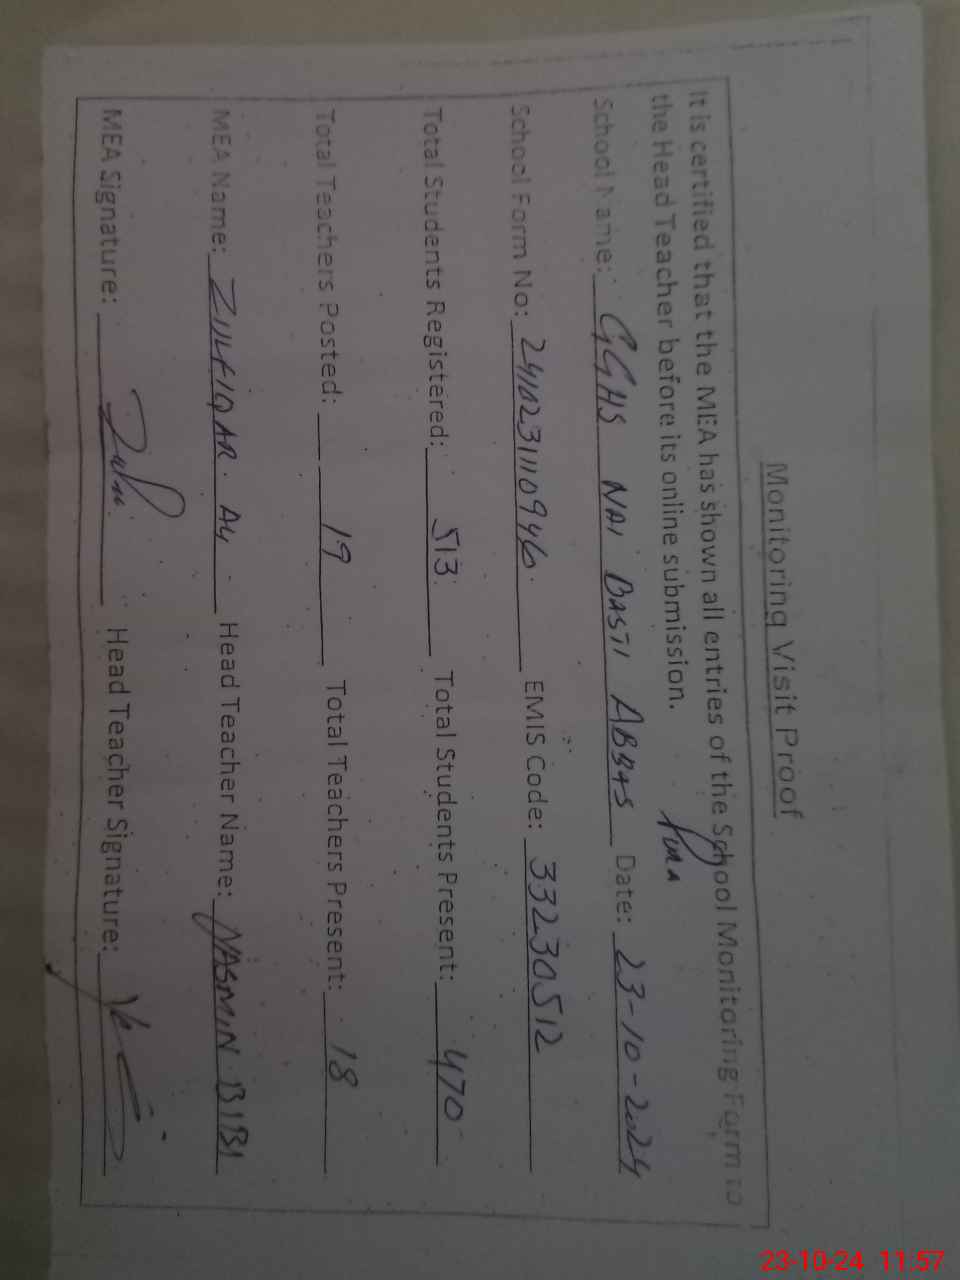 Monitoring Visit Proof
It is certified that the MEA has shown all entries of the School Monitoring Form to
the Head Teacher before its online submission.
School Name: GGHS NAI BASTI ABBAS Date: 23-10-2024
School Form No: 2410231110946 EMIS Code: 33230512
Total Students Registered: 513 Total Students Present: 470
Total Teachers Posted: 19 Total Teachers Present: 18
MEA Name: ZULFIQAR ALI Head Teacher Name: YASMIN BIBI
MEA Signature: Head Teacher Signature:
23-10-24 11:57